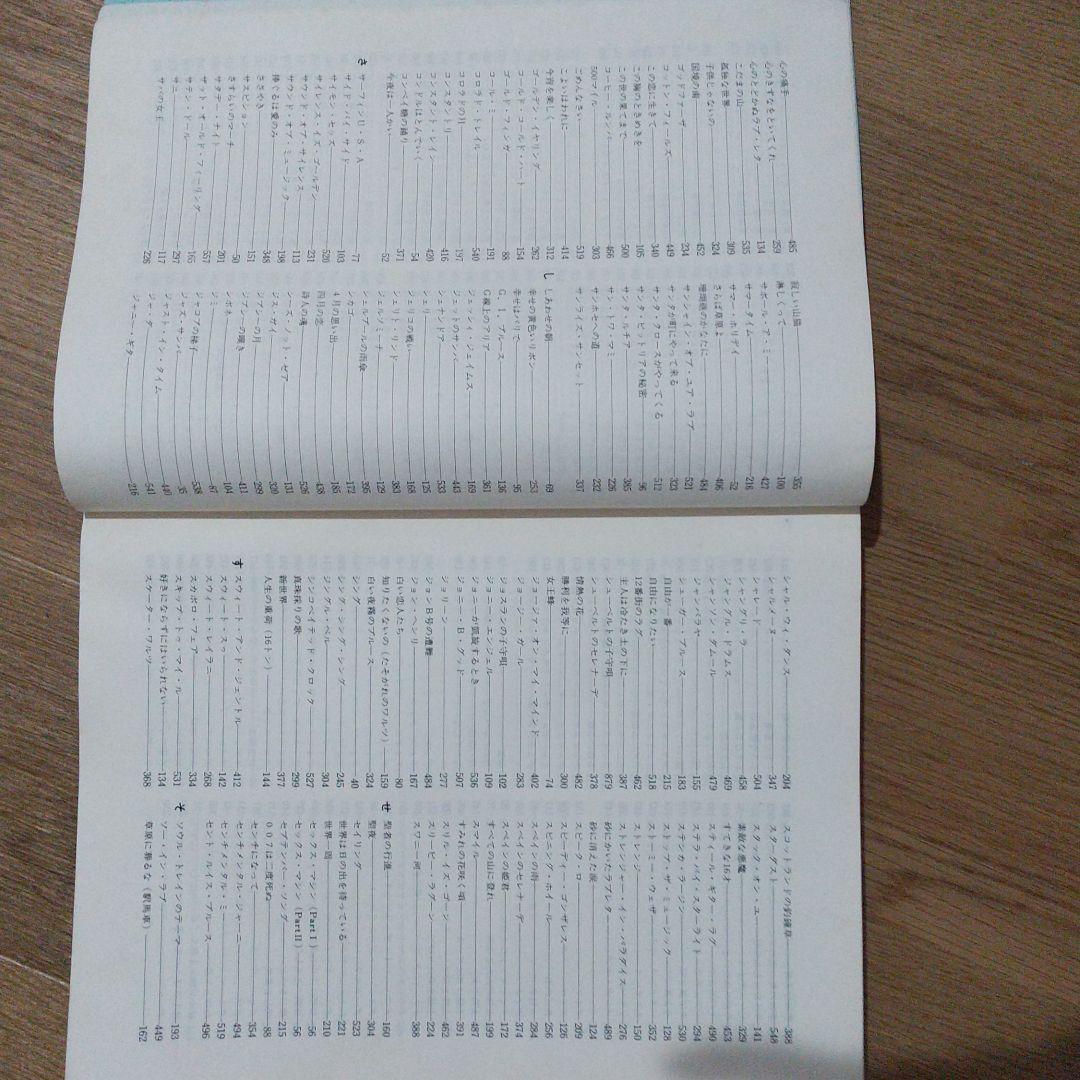 心の痛手 485
心のきずなをといてくれ 259
心のとどかぬラブ・レター 134
こだまの山 535
孤独な世界 309
子供じゃないの 324
国境の南 452
ゴッドファーザー 234
コットン・フィールズ 449
この恋に生きて 340
この胸のときめきを 105
この世の果てまで 500
コーヒー・ルンバ 466
500マイル 303
ごめんなさい 519
こよいはわれに 414
今宵を楽しく 312
ゴールデン・イヤリング 262
コールド・コールド・ハート 154
ゴールド・フィンガー 88
コール・ミー 191
コロラド・トレイル 540
コロラドの月 197
コンスタントリー 416
コンスタント・レイン 420
コンドルはとんでいく 54
コンペイ糖の踊り 371
今夜は一人かい 52
さ
サーフィンU・S・A 77
サイド・バイ・サイド 103
サイモン・セッズ 520
サイレンス・イズ・ゴールデン 231
サウンド・オブ・サイレンス 113
サウンド・オブ・ミュージック 198
捧ぐるは愛のみ 348
ささやき 151
サスピション 50
さすらいのマーチ 201
サタデー・ナイト 557
ザット・オールド・フィーリング 165
サテン・ドール 297
サニー 117
サバの女王 226
寂しい山猫 355
淋しくって 100
サボール・ア・ミ 427
サマー・タイム 216
サマー・ホリデイ 52
さらば草原よ 406
珊瑚礁のかなたに 484
サンシャイン・オブ・ユア・ラブ 521
サンタが町にやって来る 323
サンタ・クロースがやってくる 512
サンタ・ビットリアの秘密 96
サンタ・ルチア 385
サントワ・マミー 226
サンホセへの道 232
サンライズ・サンセット 337
し
しあわせの朝 69
幸せの黄色いリボン 253
幸せはパリで 95
G.I.ブルース 136
G線上のアリア 361
ジェッシイ・ジェイムス 169
ジェットのサンバ 443
シェナンドア 533
シェリー 125
ジェリコの戦い 168
ジェリト・リンド 383
ジェルソミーナ 129
シェルブールの雨傘 395
シカゴ 172
4月の思い出 185
四月の恋 438
詩人の魂 526
シーズ・ノット・ゼア 131
ジス・ガイ 320
ジプシーの月 299
ジプシーの嘆き 411
シボネー 104
ジミー 87
ジャコブの梯子 538
ジャズ・サンバ 35
ジャスト・イン・タイム 440
シャーター 541
ジャニー・ギター 216
シャル・ウィ・ダンス 204
シャルメーヌ 347
シャレード 504
シャングリ・ラ 458
ジャングル・ドラムス 469
ジャンソン・ダムール 479
ジャンバラヤ 155
シューガー・ブルース 183
自由が一番 215
自由になりたい 518
12番街のラグ 462
主人は冷たき土の下に 387
シューベルトの子守唄 879
シューベルトのセレナーデ 378
情熱の花 482
勝利を我等に 300
女王蜂 74
ジョージァ・オン・マイ・マインド 402
ジョージー・ガール 283
ジョスランの子守唄 102
ジョニー・エンジェル 109
ジョニーが凱旋するとき 536
ジョニー・B・グッド 507
ジョリーン 277
ジョン・B号の遭難 484
ジョン・ヘンリー 167
白い恋人たち 80
知りたくないの(たそがれのワルツ) 159
白い夜霧のブルース 324
シング 40
シング・シング・シング 245
ジングル・ベル 304
シンコペイテッド・クロック 527
真珠採りの歌 299
新世界 377
人生の重荷(16トン) 144
す
スウィート・アンド・ジェントル 412
スウィート・スゥ 142
スウィート・レイラニ 268
スカボロ・フェア 334
スキップ・トゥ・マイ・ルー 531
好きにならずにはいられない 134
スケーター・ワルツ 368
スコットランドの釣鐘草 388
スター・ダスト 548
スタック・オン・ユー 141
素敵な悪魔 329
すてきな16才 453
スティール・ギター・ラグ 490
ステラ・バイ・スターライト 294
ステンカ・ラージン 530
ストップ・ザ・ミュージック 128
ストーミー・ウェザー 352
ストレンジャー・イン・パラダイス 276
砂にかいたラブレター 489
砂に消えた涙 124
スピーク・ロー 209
スピーディー・ゴンザレス 126
スピニング・ホイール 256
スペインの雨 284
スペインのセレナーデ 374
スペインの姫君 172
すべての山に登れ 199
スマイル 487
すみれの花咲く頃 391
スリル・イズ・ゴーン 462
スリーピー・ラグーン 224
スワニー河 388
せ
聖者の行進 160
聖夜 304
セイリング 523
世界は日の出を待っている 221
世界一周 210
セックス・マシン(PartI) 56
セックス・マシン(PartII) 56
セプテンバー・ソング 215
007は二度死ぬ 88
センチになって 354
センチメンタル・ジャーニー 494
センチメンタル・ミー 519
セント・ルイス・ブルース 496
そ
ソウル・トレインのテーマ 193
ソー・イン・ラブ 449
草原に葬るな(駅馬車) 162